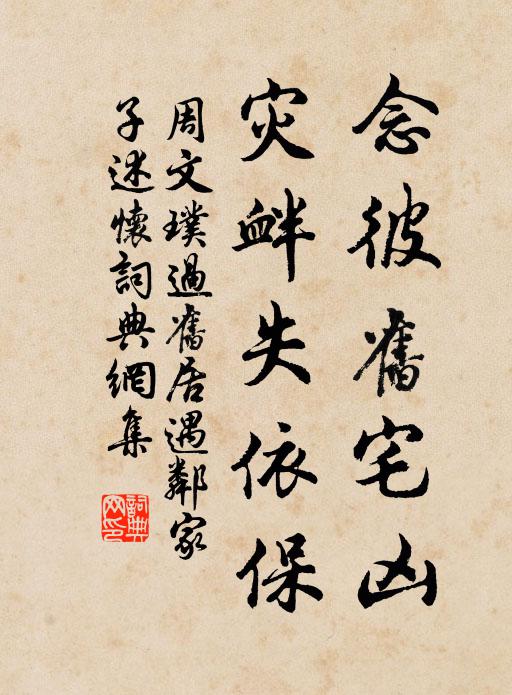 念彼舊宅凶
灾衅失依保
周文璞過舊居遇鄰家
子述懷詞典網集
詞典
网印